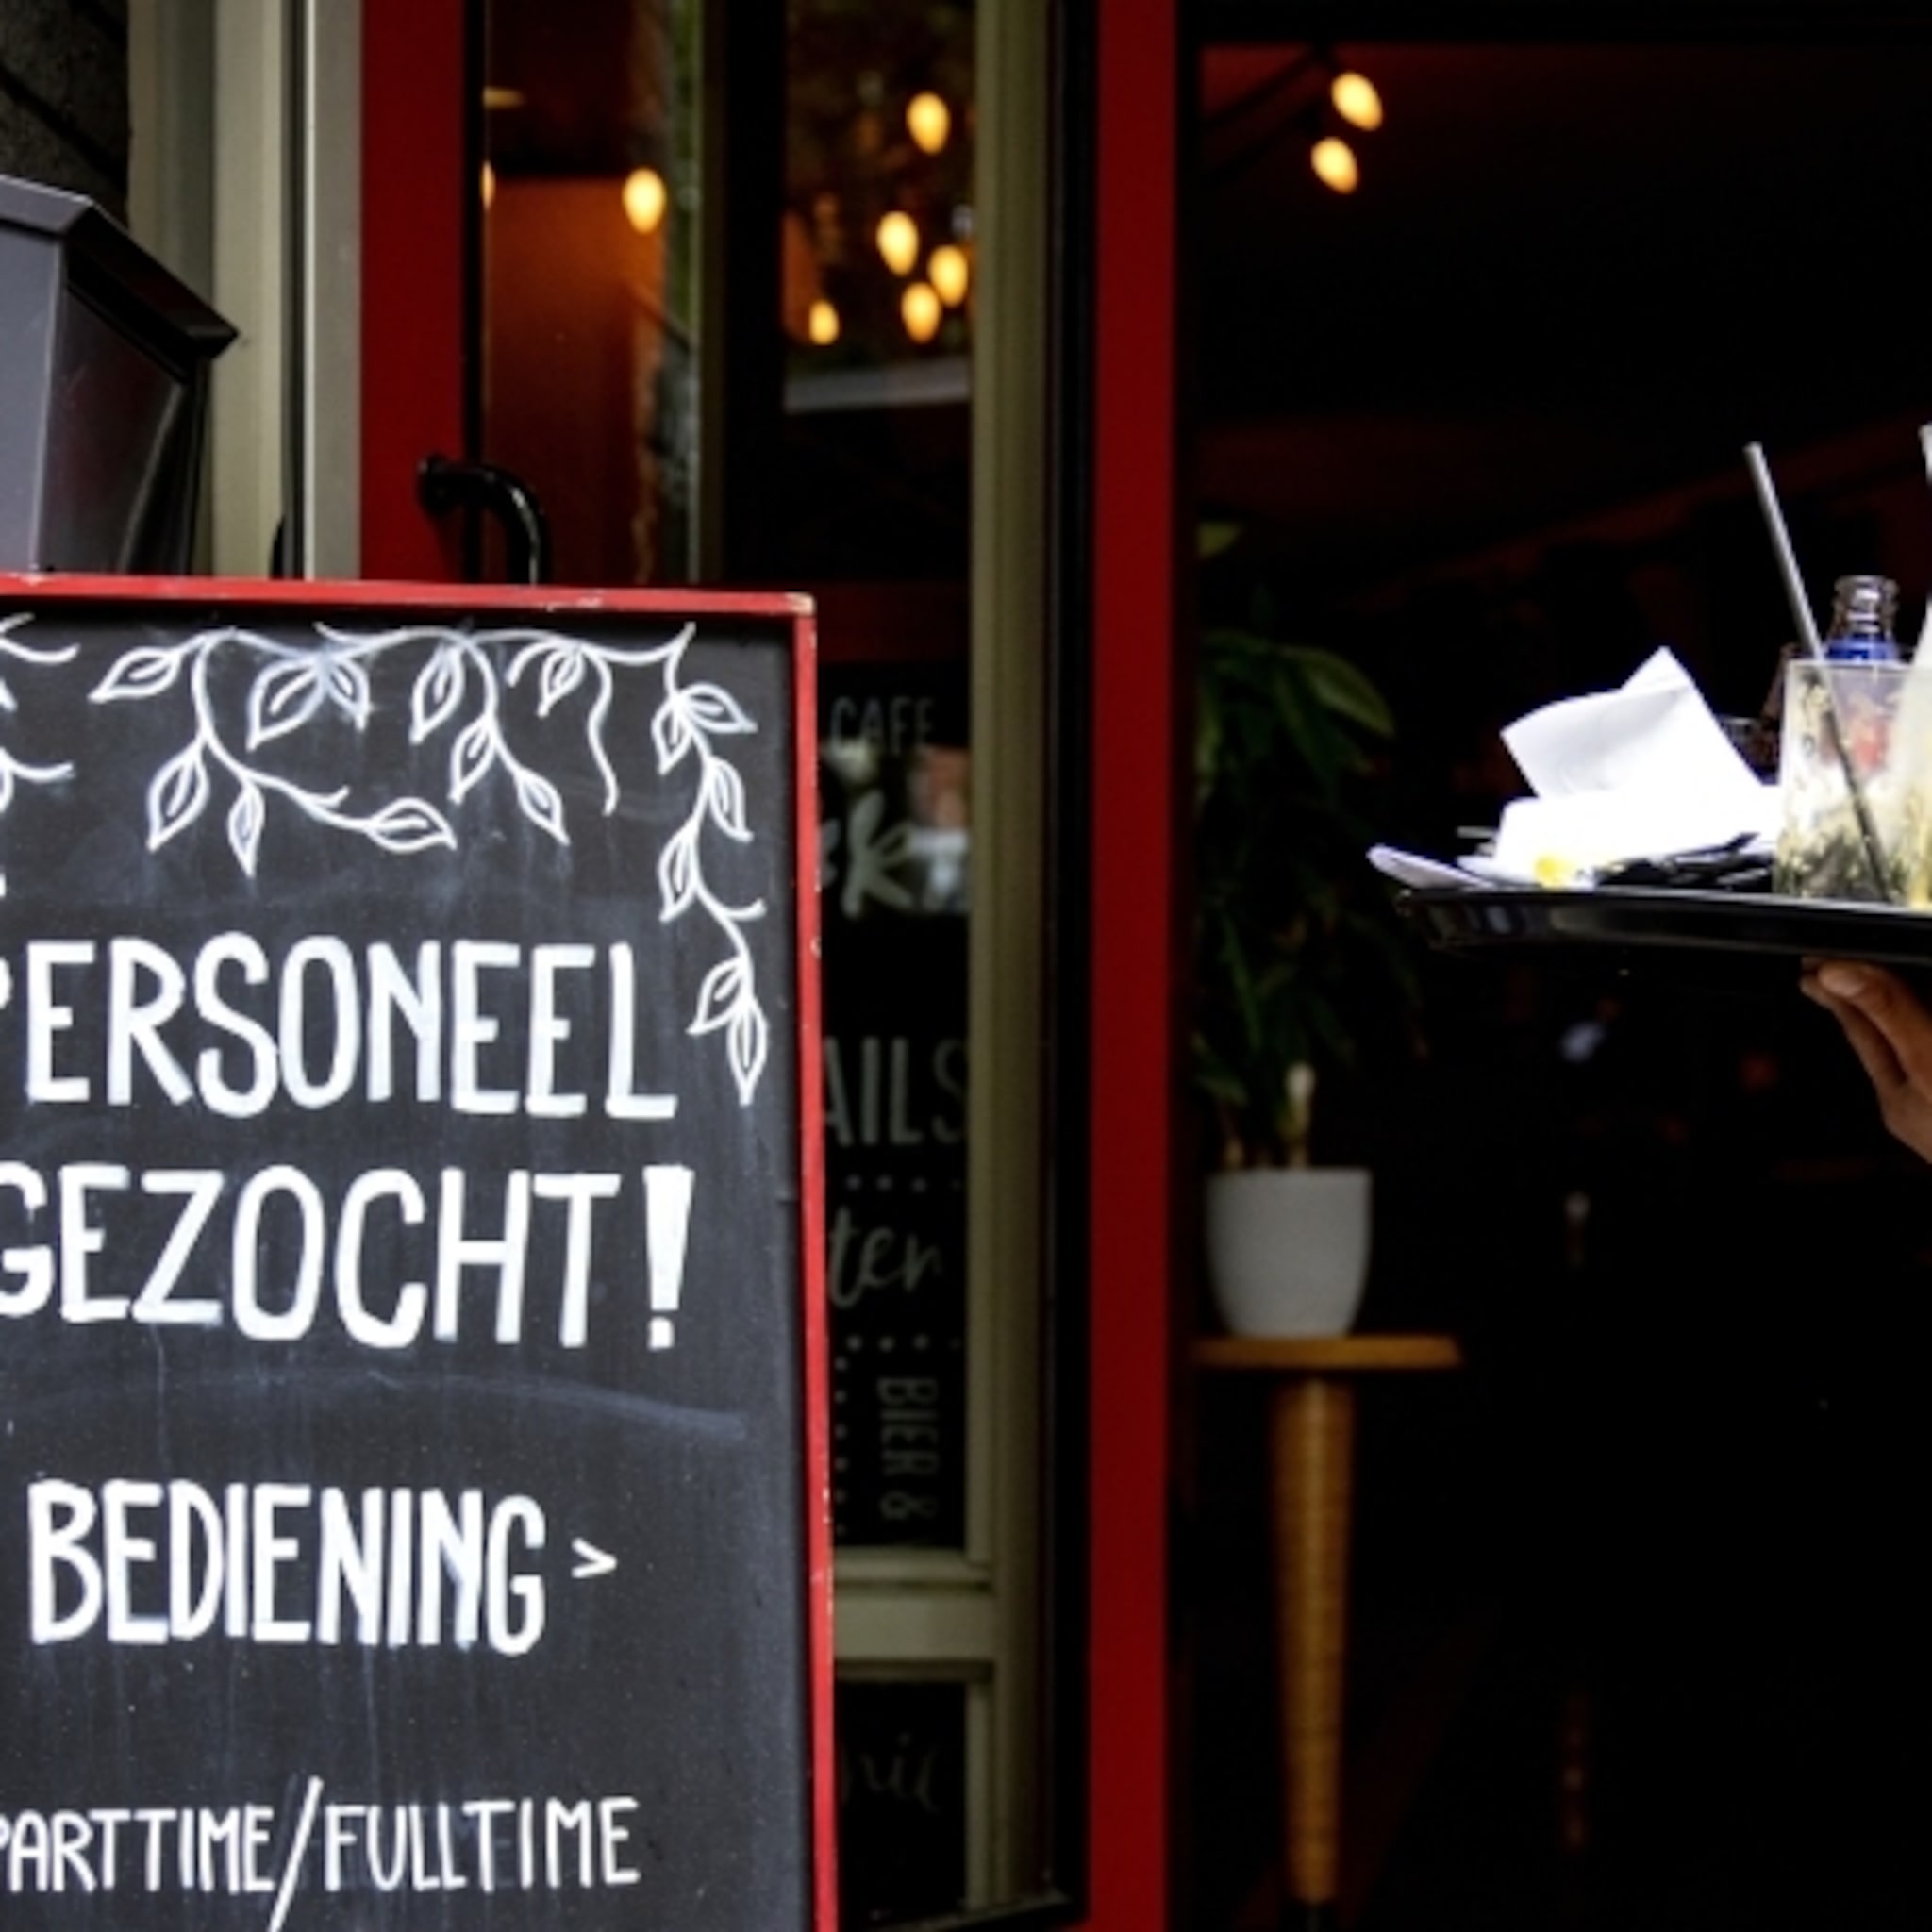 PERSONEEL
GEZOCHT!
BEDIENING >
PARTTIME/FULLTIME
CAFE
AILS
ten
BIER &